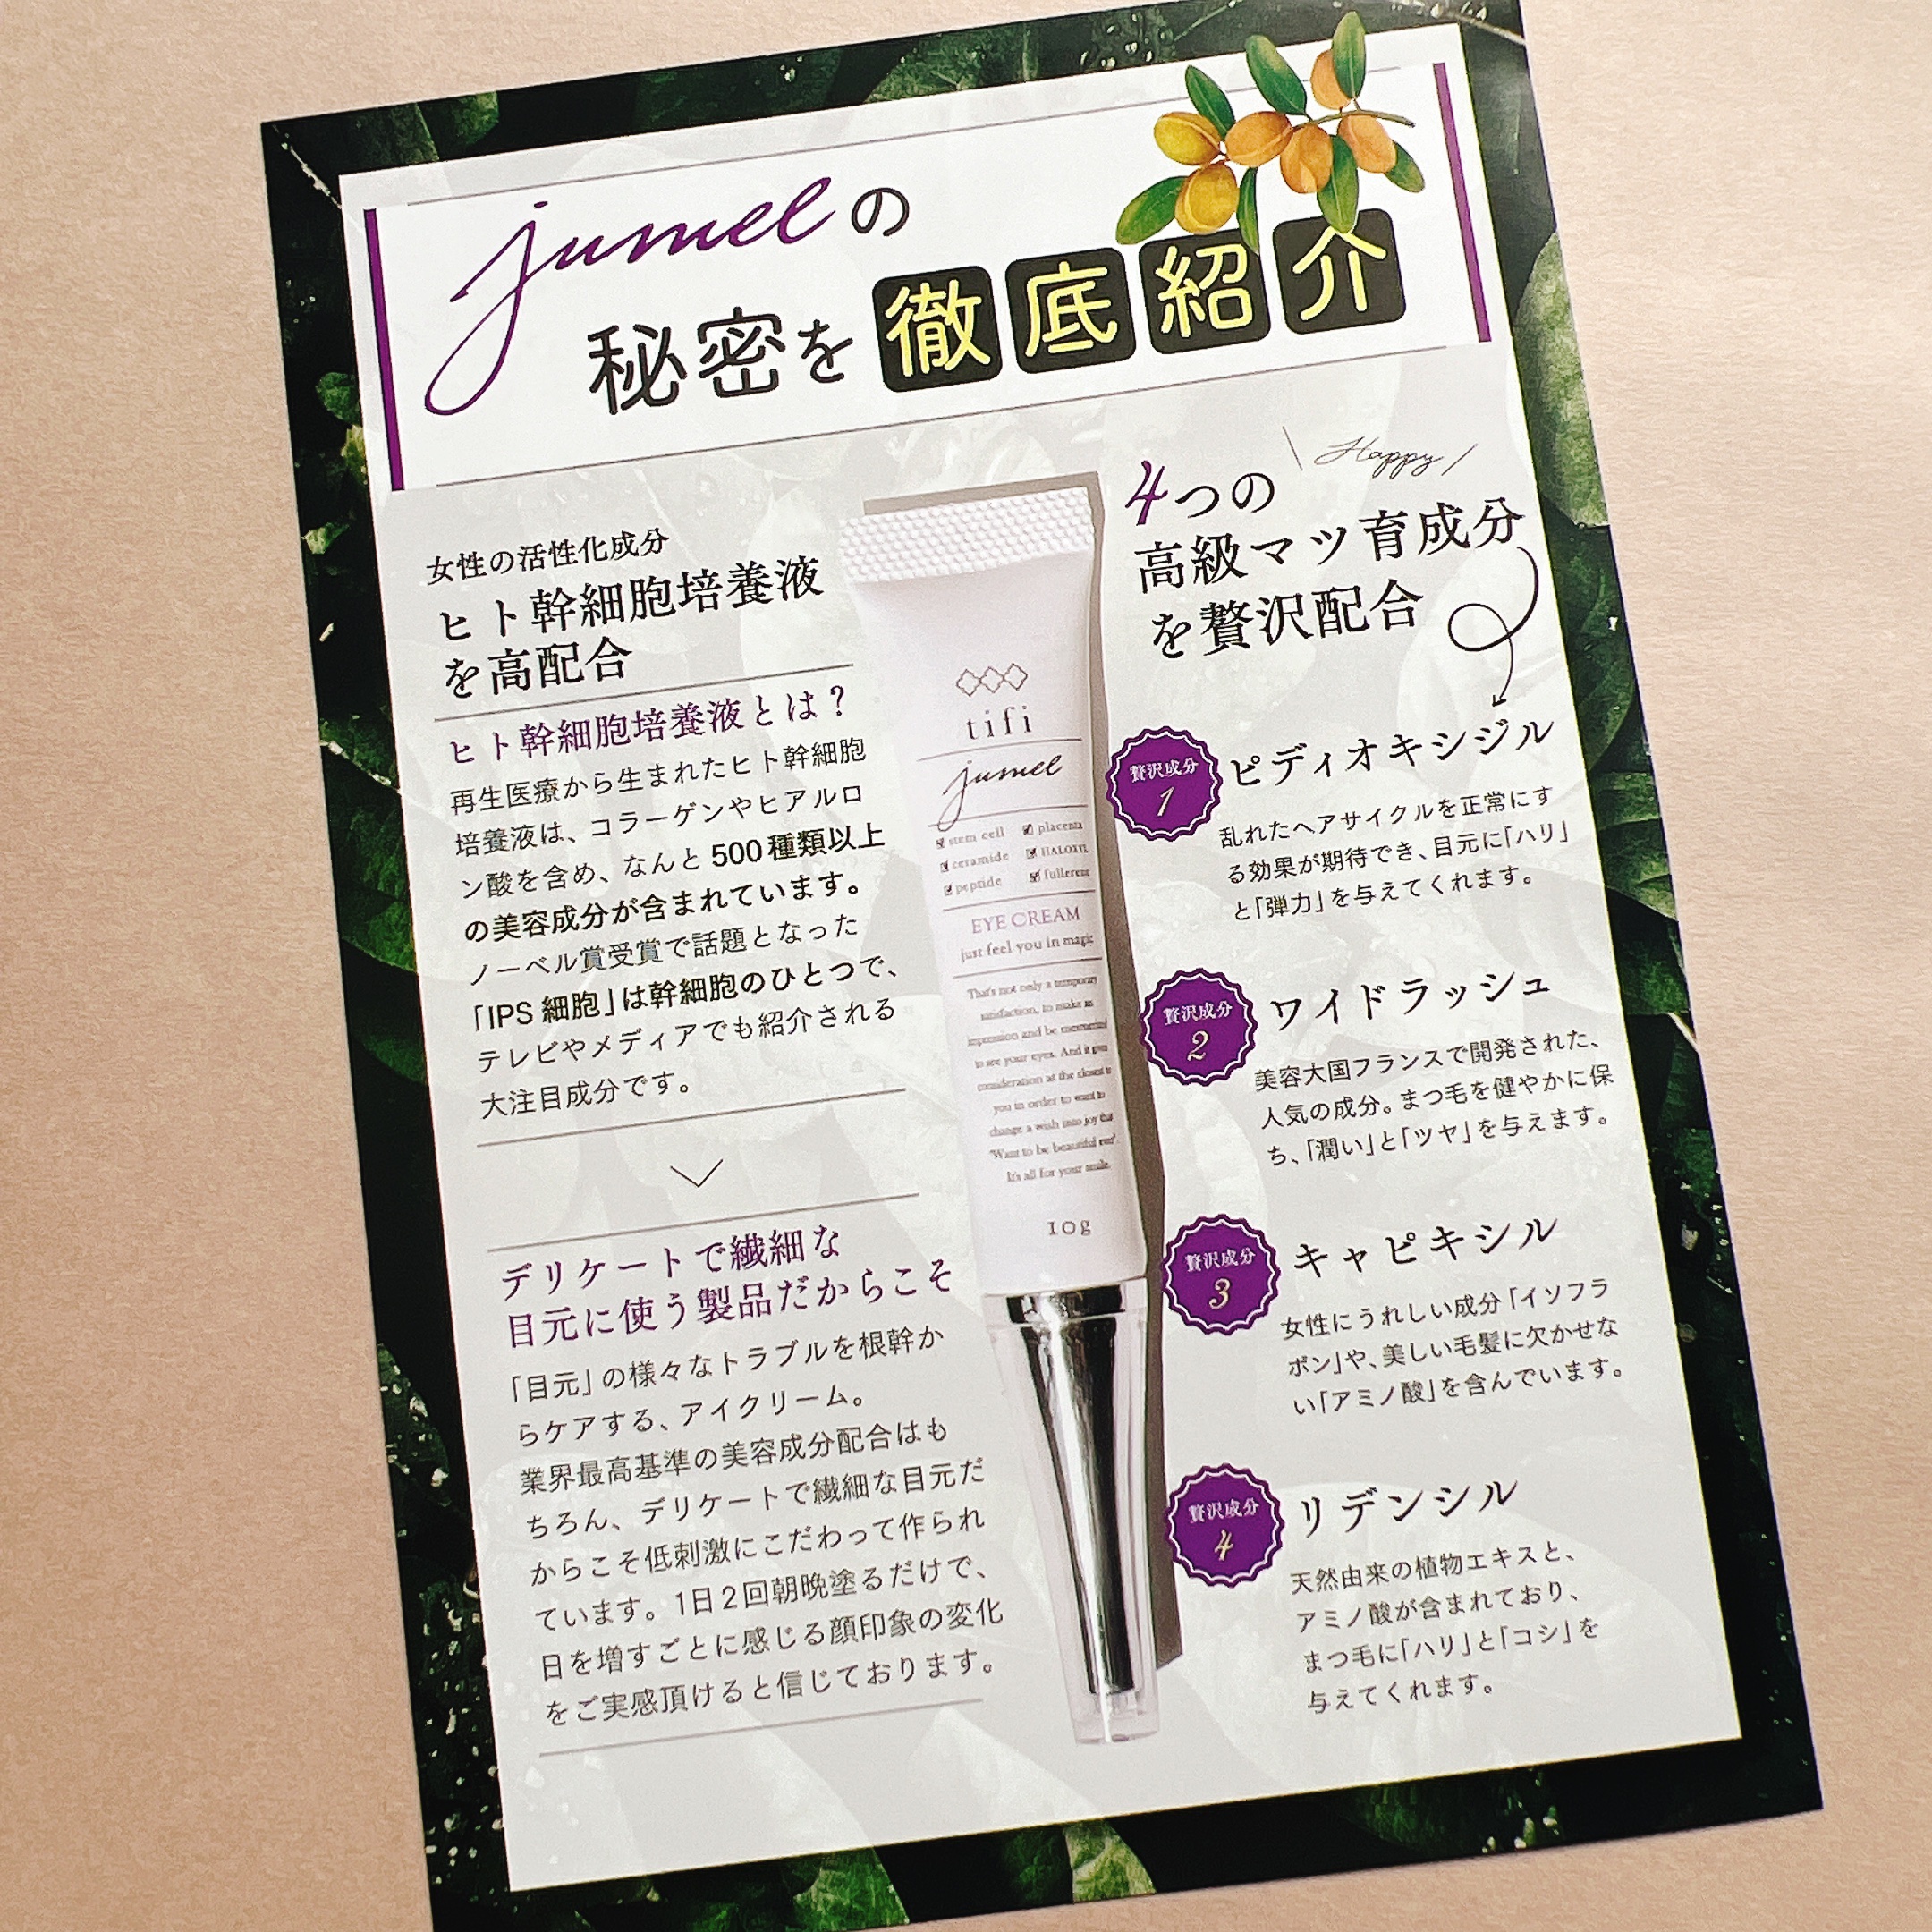 jumelの
秘密を徹底紹介
女性の活性化成分
ヒト幹細胞培養液
を高配合
ヒト幹細胞培養液とは?
再生医療から生まれたヒト幹細胞
培養液は、コラーゲンやヒアルロ
ン酸を含め、なんと500種類以上
の美容成分が含まれています。
ノーベル賞受賞で話題となった
「IPS 細胞」は幹細胞のひとつで、
テレビやメディアでも紹介される
大注目成分です。
デリケートで繊細な
目元に使う製品だからこそ
「目元」の様々なトラブルを根幹か
らケアする、アイクリーム。
業界最高基準の美容成分配合はも
ちろん、デリケートで繊細な目元だ
からこそ低刺激にこだわって作られ
ています。1日2回朝晩塗るだけで、
日を増すごとに感じる顔印象の変化
をご実感頂けると信じております。
tifi
jumel
stem cell placenta
ceramide HALOXYL
peptide fullerene
EYE CREAM
just feel you in magic
That's not only a temporary
satisfaction, to make an
impression and be memorial
to see your eyes. And it gives
consideration at the closest to
you in order to want to
change a wish into joy that
"Want to be beautiful ever".
It's all for your smile.
10g
Happy
4つの
高級マツ育成分
を贅沢配合
贅沢成分
1
ピディオキシジル
乱れたヘアサイクルを正常にす
る効果が期待でき、目元に「ハリ」
と「弾力」を与えてくれます。
贅沢成分
2
ワイドラッシュ
美容大国フランスで開発された、
人気の成分。まつ毛を健やかに保
ち、「潤い」と「ツヤ」を与えます。
贅沢成分
3
キャピキシル
女性にうれしい成分「イソフラ
ボン」や、美しい毛髪に欠かせな
い「アミノ酸」を含んでいます。
贅沢成分
4
リデンシル
天然由来の植物エキスと、
アミノ酸が含まれており、
まつ毛に「ハリ」と「コシ」を
与えてくれます。